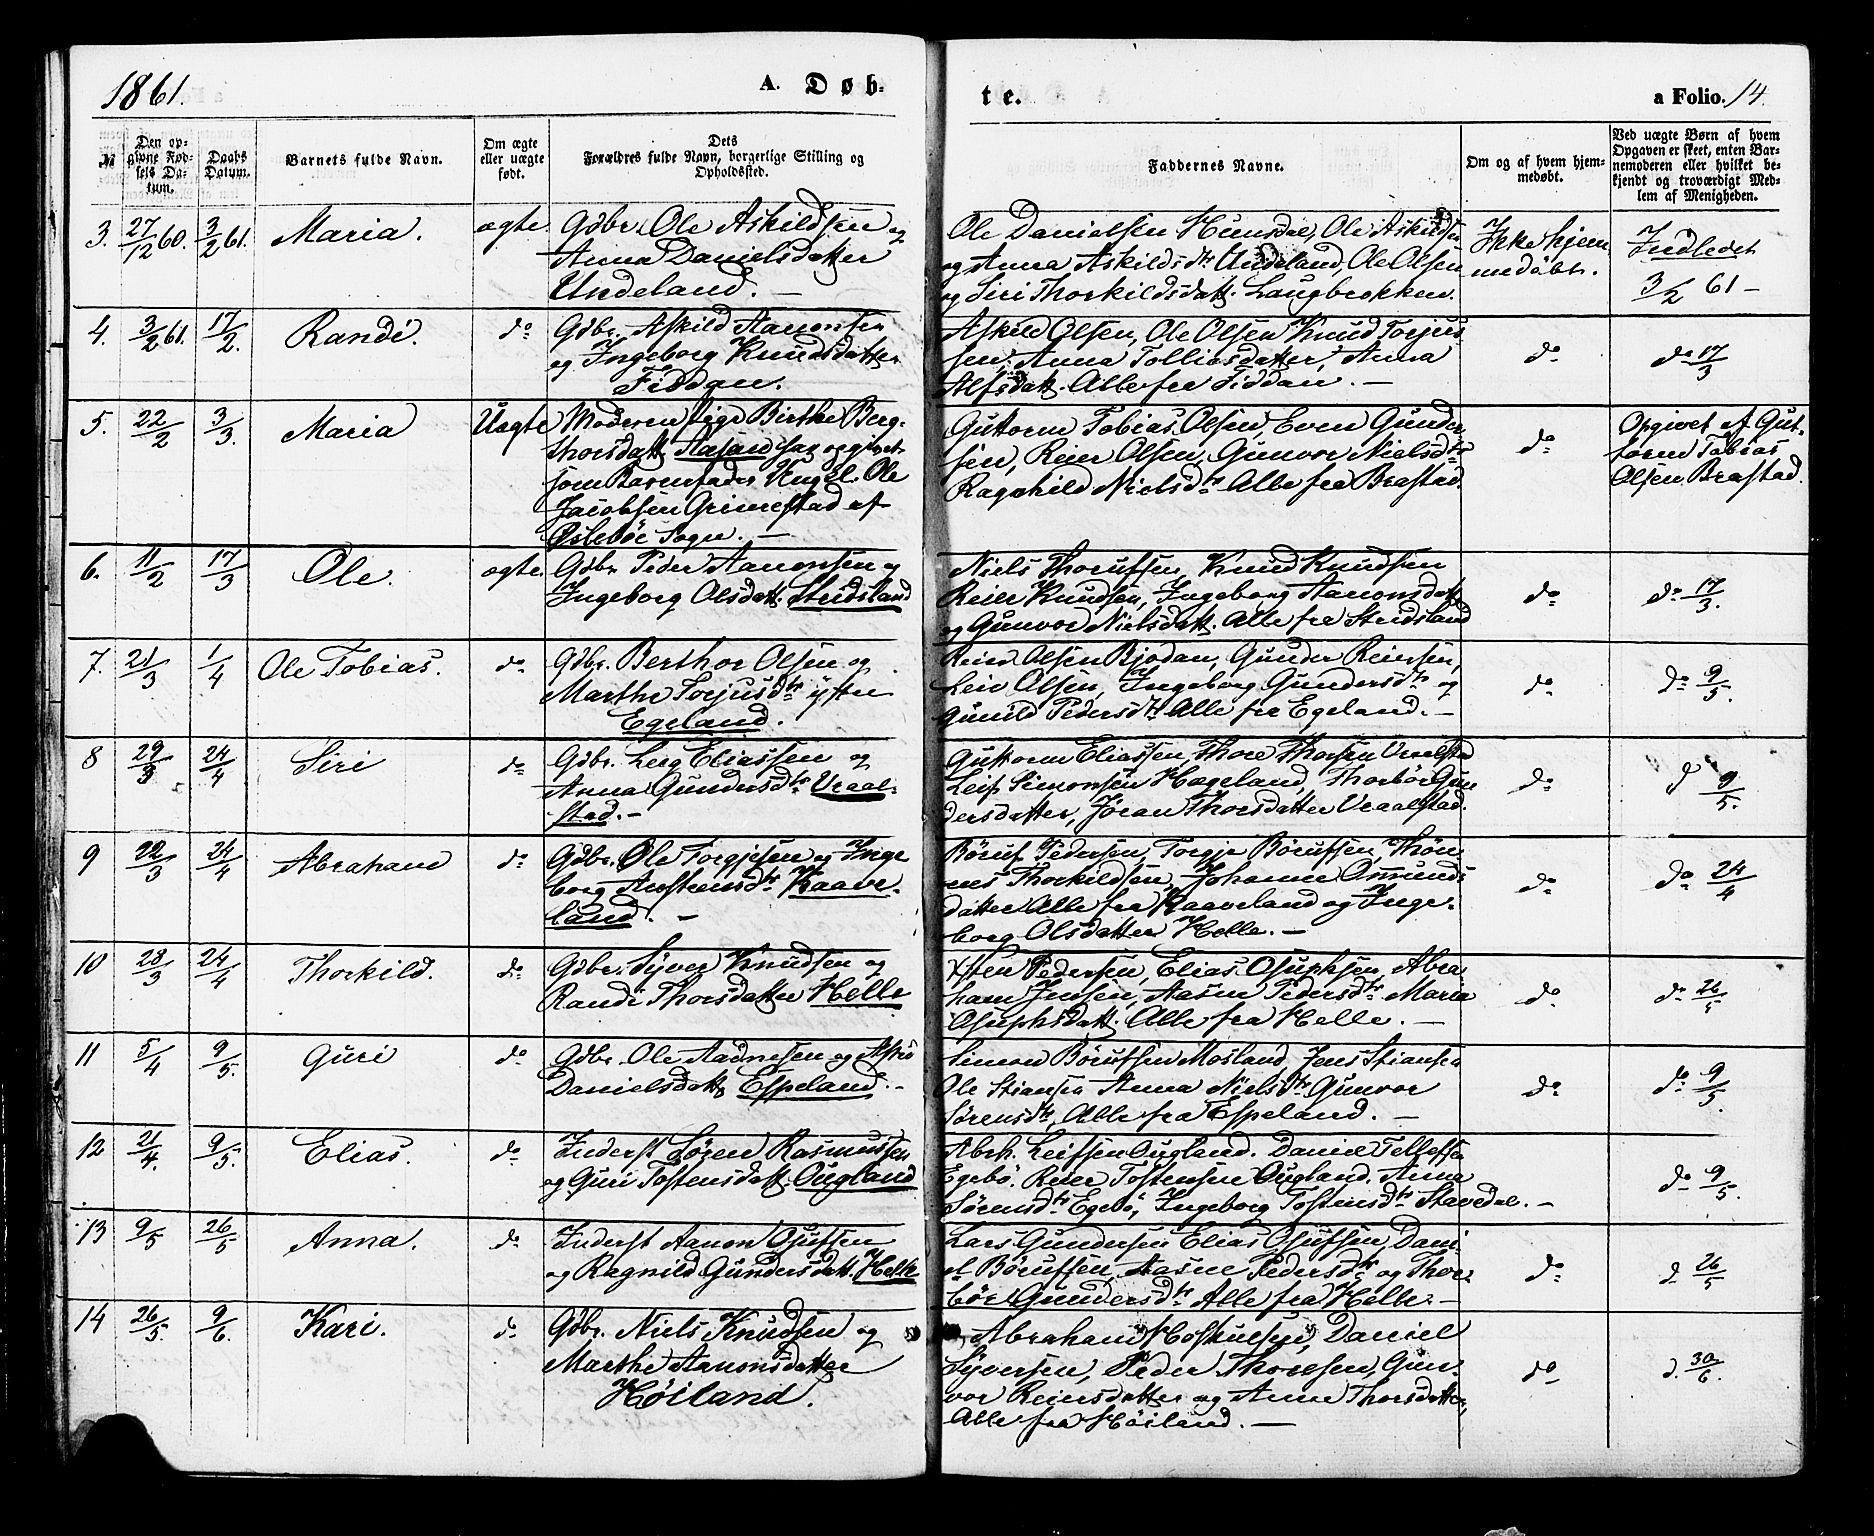 1861.
A. Døb-
te.
a Folio. 14.
№
Den op-
givne Fød-
sels Da-
tum.
Daabs
Datum.
Barnets fulde Navn.
Om ægte
eller uægte
født.
Dets
Forældres fulde Navn, borgerlige Stilling og
Opholdssted.
Faddernes Navne.
Om og af hvem hjem-
medøbt.
Ved uægte Børn af hvem
Opgaven er skeet, enten Bar-
nemoderen eller hvilket be-
kjendt og troværdigt Med-
lem af Menigheden.
3. 27/12 60. 3/2 61. Maria. ægte.
Gdbr. Ole Askildsen og
Anna Danielsdatter
Undeland. —
Ole Danielsen Hunsdal, Ole Askildsen
og Anna Askildsdtr Undeland, Ole Olsen
og Siri Thorkildsdatt. Laugbrokken.
Ikke hjem
medøbt.
Indledet
3/2 61 —
4. 3/2 61. 17/2. Randi. do
Gdbr. Askild Aanonsen
og Ingeborg Knudsdatter
Fiddan.
Askild Olsen, Ole Olsen Knud Torjus
sen, Anna Tolliasdatter, Anna
Alfsdatt. Alle fra Fiddan. —
do
do 17/3
5. 22/2 3/3. Maria Uægte
Moderen Pige Birthe Berg-
thorsdatt. Aasand har opgivet
som Barnefader Ungk. Ole
Jacobsen Grimestad af
Øslebøe Sogn. —
Guttorm Tobias Olsen, Even Gunder
sen, Reier Olsen, Gunvor Nielsdtr
Ragnhild Nielsdtr Alle fra Brastad.
do
Opgivet af Gut-
torm Tobias
Olsen Brastad.
6. 11/2 17/3 Ole. ægte.
Gdbr. Peder Aanonsen og
Ingeborg Olsdatt. Stedsland
Niels Thorufsen, Knud Knudsen
Reier Knudsen, Ingeborg Aanonsdatt.
og Gunvor Nielsdatt. Alle fra Stedsland
do
do 17/3.
7. 21/3 1/4 Ole Tobias. do
Gdbr. Berthor Olsen og
Marthe Torjusdtr yftre
Egeland.
Reier Olsen Bjodan, Gunder Reiersen,
Leiv Olsen, Ingeborg Gundersdtr og
Gunild Pedersdtr Alle fra Egeland. —
do
do 9/5.
8 29/3 24/4 Siri do
Gdbr. Lerg Eliassen og
Anna Gundersdtr Vraal-
stad. —
Guttorm Eliassen, Thore Thorsen Vraalstad
Leif Simonsen Hægeland, Thorbør Gun
dersdatter, Jøran Thorsdatter Vraalstad.
do
d 9/5.
9 22/3 24/4 Abraham do
Gdbr. Ole Torgjesen og Inge
borg Aastensdtr Kaave-
land. —
Børuf Pedersen, Torgje Børufsen, Thøn-
nes Thorkildsen, Johanne Omunds
datter Alle fra Kaaveland og Inge-
borg Olsdatter Helle. —
do
do 24/4
10 28/3 24/4 Thorkild. do
Gdbr. Syver Knudsen og
Randi Thorsdatter Helle
Ysten Pedersen, Elias Osuphsen, Abra
ham Jensen, Aasne Pedersdtr Maria
Osuphsdatt. Alle fra Helle. —
do
do 26/5
11 5/4 9/5. Guri do
Gdbr. Ole Aadnesen og Astri
Danielsdatt. Espeland. —
Simon Børufsen Mosland, Jens Stiansen
Ole Stiansen Anna Nielsdtr Gunvor
Sørensdtr, Alle fra Espeland. —
do
do 9/5.
12 21/4. 9/5. Elias. do
Inderst Søren Rasmussen
og Guri Tostensdatt. Ougland
Abrh. Leifsen Ougland. Daniel Tellefsen
Egebø. Reier Tostensen Ougland. Anna
Sørensdtr Egebø, Ingeborg Tostensdtr Stavedal. —
do 9/5.
13 9/5 26/5 Anna. do
Inderst Aanon Osufsen
og Ragnild Gundersdatt. Helle
Lars Gundersen Elias Osufsen, Dani-
el Børufsen, Aasne Pedersdtr og Thor-
bør Gundersdtr Alle fra Helle —
do
d. 26/5
14 26/5. 9/6. Kari. do
Gdbr. Niels Knudsen og
Marthe Aanonsdatter
Høiland.
Abraham Hoskulsen, Daniel
Syversen, Peder Thorsen, Gun-
vor Reiersdatter og Anne Thorsdatter,
Alle fra Høiland. —
do
d. 30/6.